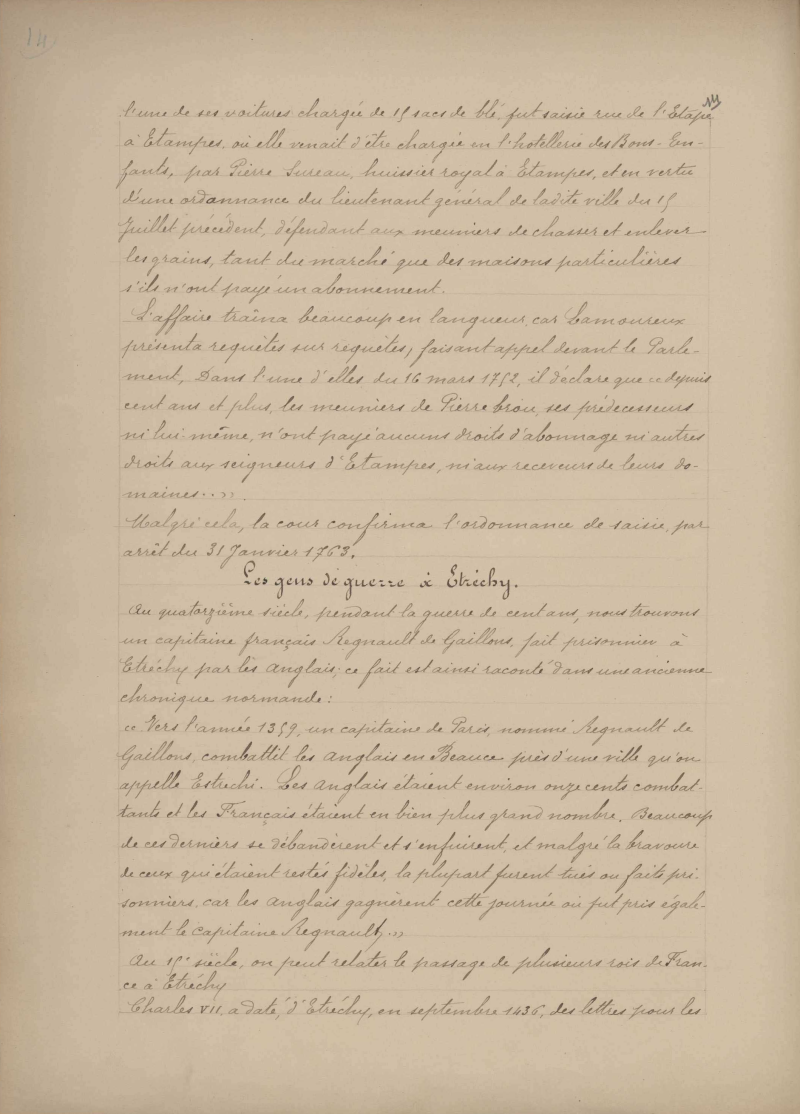 14
14
l'une de ses voitures chargée de 15 sacs de blé, fut saisie rue de l'Etape
à Etampes, où elle venait d'être chargée en l'hotellerie des Bons-En-
fants, par Pierre Sureau, huissier royal à Etampes, et en vertu
d'une ordonnance du lieutenant général de ladite ville du 15
Juillet précédent, défendant aux meuniers de chasser et enlever
les grains, tant du marché que des maisons particulières
s'ils n'ont payé un abonnement.
L'affaire traîna beaucoup en langueur, car Lamoureux
présenta requêtes sur requêtes, faisant appel devant le Parle-
ment, Dans l'une d'elles du 16 mars 1752, il déclare que « depuis
cent ans et plus, les meuniers de Pierre brou, ses prédecesseurs
ni lui-même, n'ont payé aucuns droits d'abonnage ni autres
droits aux seigneurs d'Etampes, ni aux receveurs de leurs do-
maines..».
Malgré cela, la cour confirma l'ordonnance de saisie, par
arrêt du 31 Janvier 1763.
Les gens de guerre à Etréchy.
Au quatorzième siècle, pendant la guerre de cent ans, nous trouvons
un capitaine français Regnault de Gaillons, fait prisonnier à
Etréchy par les anglais; ce fait est ainsi raconté dans une ancienne
chronique normande:
« Vers l'année 1359, un capitaine de Paris, nommé Regnault de
Gaillons, combattit les anglais en Beauce près d'une ville qu'on
appelle Estrechi. Les anglais étaient environ onze cents combat-
tants et les Français étaient en bien plus grand nombre. Beaucoup
de ces derniers se débandèrent et s'enfuirent, et malgré la bravoure
de ceux qui étaient restés fidèles, la plupart furent tués ou faits pri-
sonniers, car les anglais gagnèrent cette journée où fut pris égale-
ment le capitaine Regnault.»
Au 15e siècle, on peut relater le passage de plusieurs rois de Fran-
ce à Etréchy
Charles VII, a daté, d'Etréchy, en septembre 1436, des lettres pour les